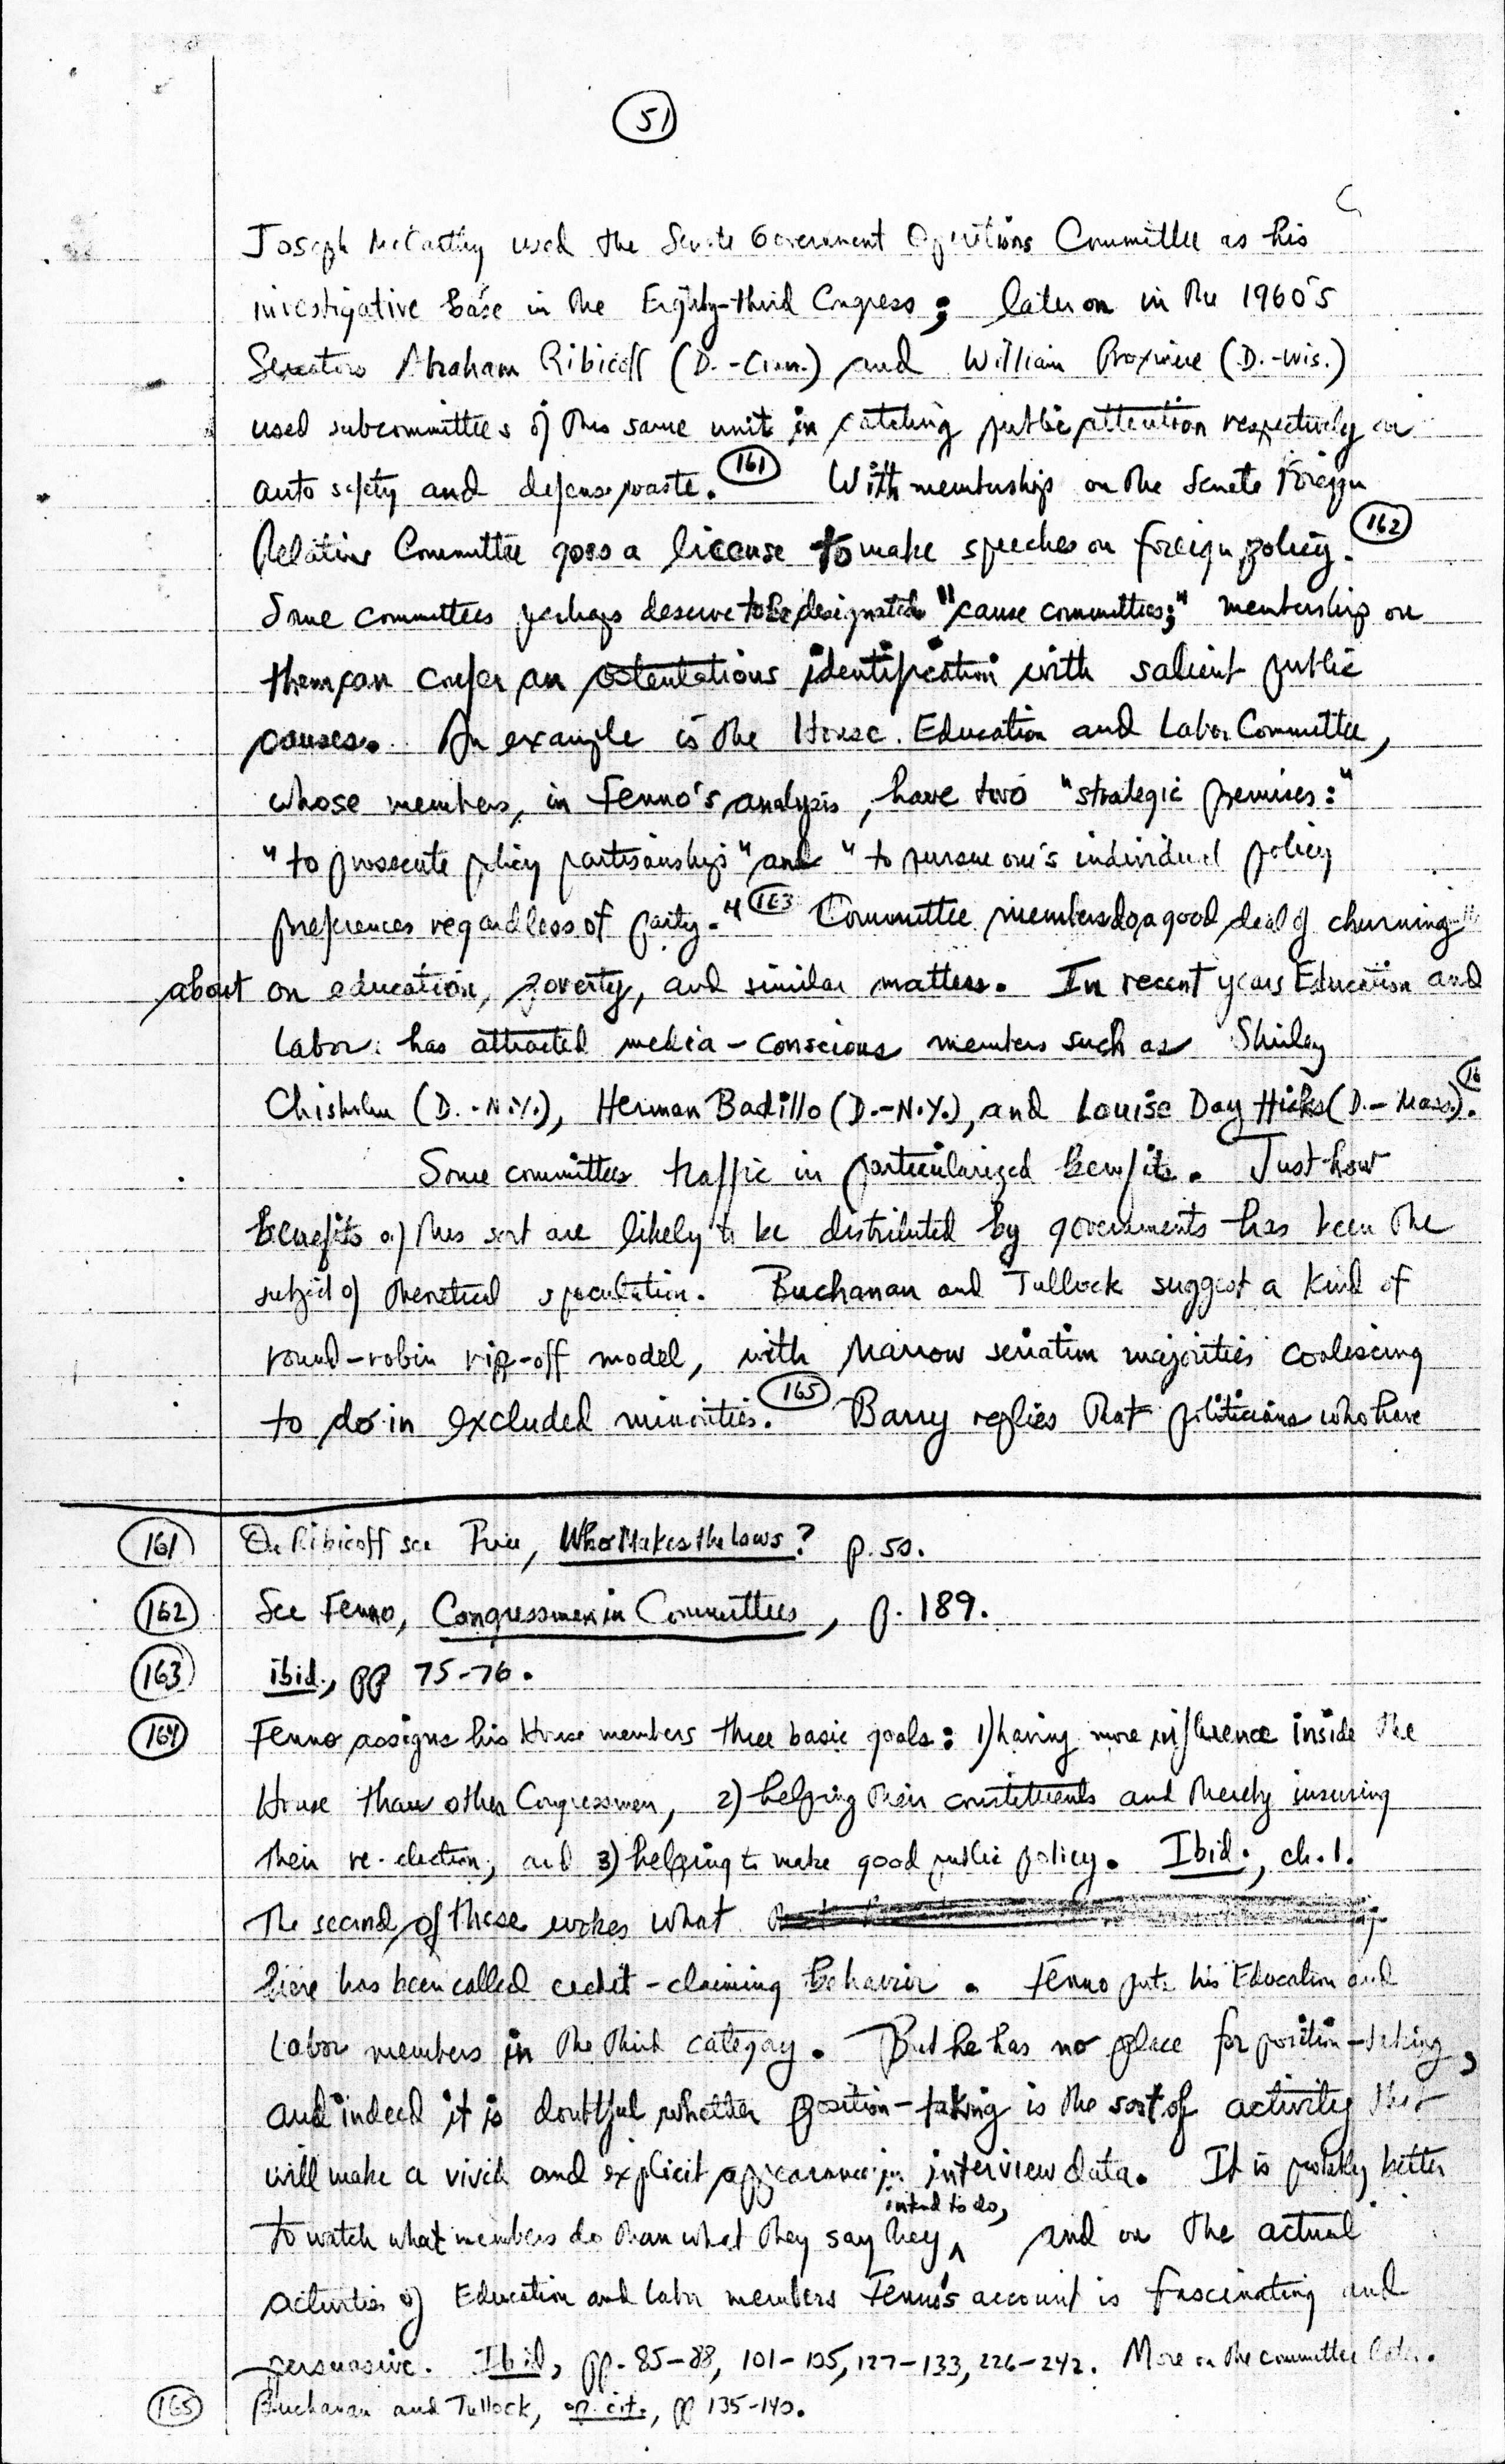 51
Joseph McCarthy used the Senate Government Operations Committee as his
investigative base in the Eighty-third Congress; later on in the 1960's
Senators Abraham Ribicoff (D.-Conn.) and William Proxmire (D.-Wis.)
used subcommittees of this same unit in catching public attention respectively on
auto safety and defense waste. 161 With membership on the Senate Foreign
Relations Committee goes a license to make speeches on foreign policy. 162
Some committees perhaps deserve to be designated "cause committees;" membership on
them can confer an ostentatious identification with salient public
causes. An example is the House Education and Labor Committee,
whose members, in Fenno's analysis, have two "strategic premises:"
"to prosecute policy partisanship" and "to pursue one's individual policy
preferences regardless of party." 163 Committee members do a good deal of churning
about on education, poverty, and similar matters. In recent years Education and
Labor has attracted media-conscious members such as Shirley
Chisholm (D.-N.Y.), Herman Badillo (D.-N.Y.), and Louise Day Hicks (D.-Mass). 16
Some committees traffic in particularized benefits. Just how
benefits of this sort are likely to be distributed by governments has been the
subject of theoretical speculation. Buchanan and Tullock suggest a kind of
round-robin rip-off model, with narrow seriatim majorities coalescing
to do in excluded minorities. 165 Barry replies that politicians who have
161 On Ribicoff see Price, Who Makes the Laws? p. 50.
162 See Fenno, Congressmen in Committees, p. 189.
163 ibid., pp 75-76.
164 Fenno assigns his House members three basic goals: 1) having more influence inside the
House than other Congressmen, 2) helping their constituents and thereby insuring
their re-election, and 3) helping to make good public policy. Ibid., ch. 1.
The second of these evokes what
here has been called credit-claiming behavior. Fenno puts his Education and
Labor members in the third category. But he has no place for position-taking,
and indeed it is doubtful whether position-taking is the sort of activity that
will make a vivid and explicit appearance in interview data. It is probably better
to watch what members do than what they say they ^ intend to do, and on the actual
activities of Education and Labor members Fenno's account is fascinating and
persuasive. Ibid, pp. 85-88, 101-105, 127-133, 226-242. More on the committee later.
165 Buchanan and Tullock, op. cit., pp 135-140.